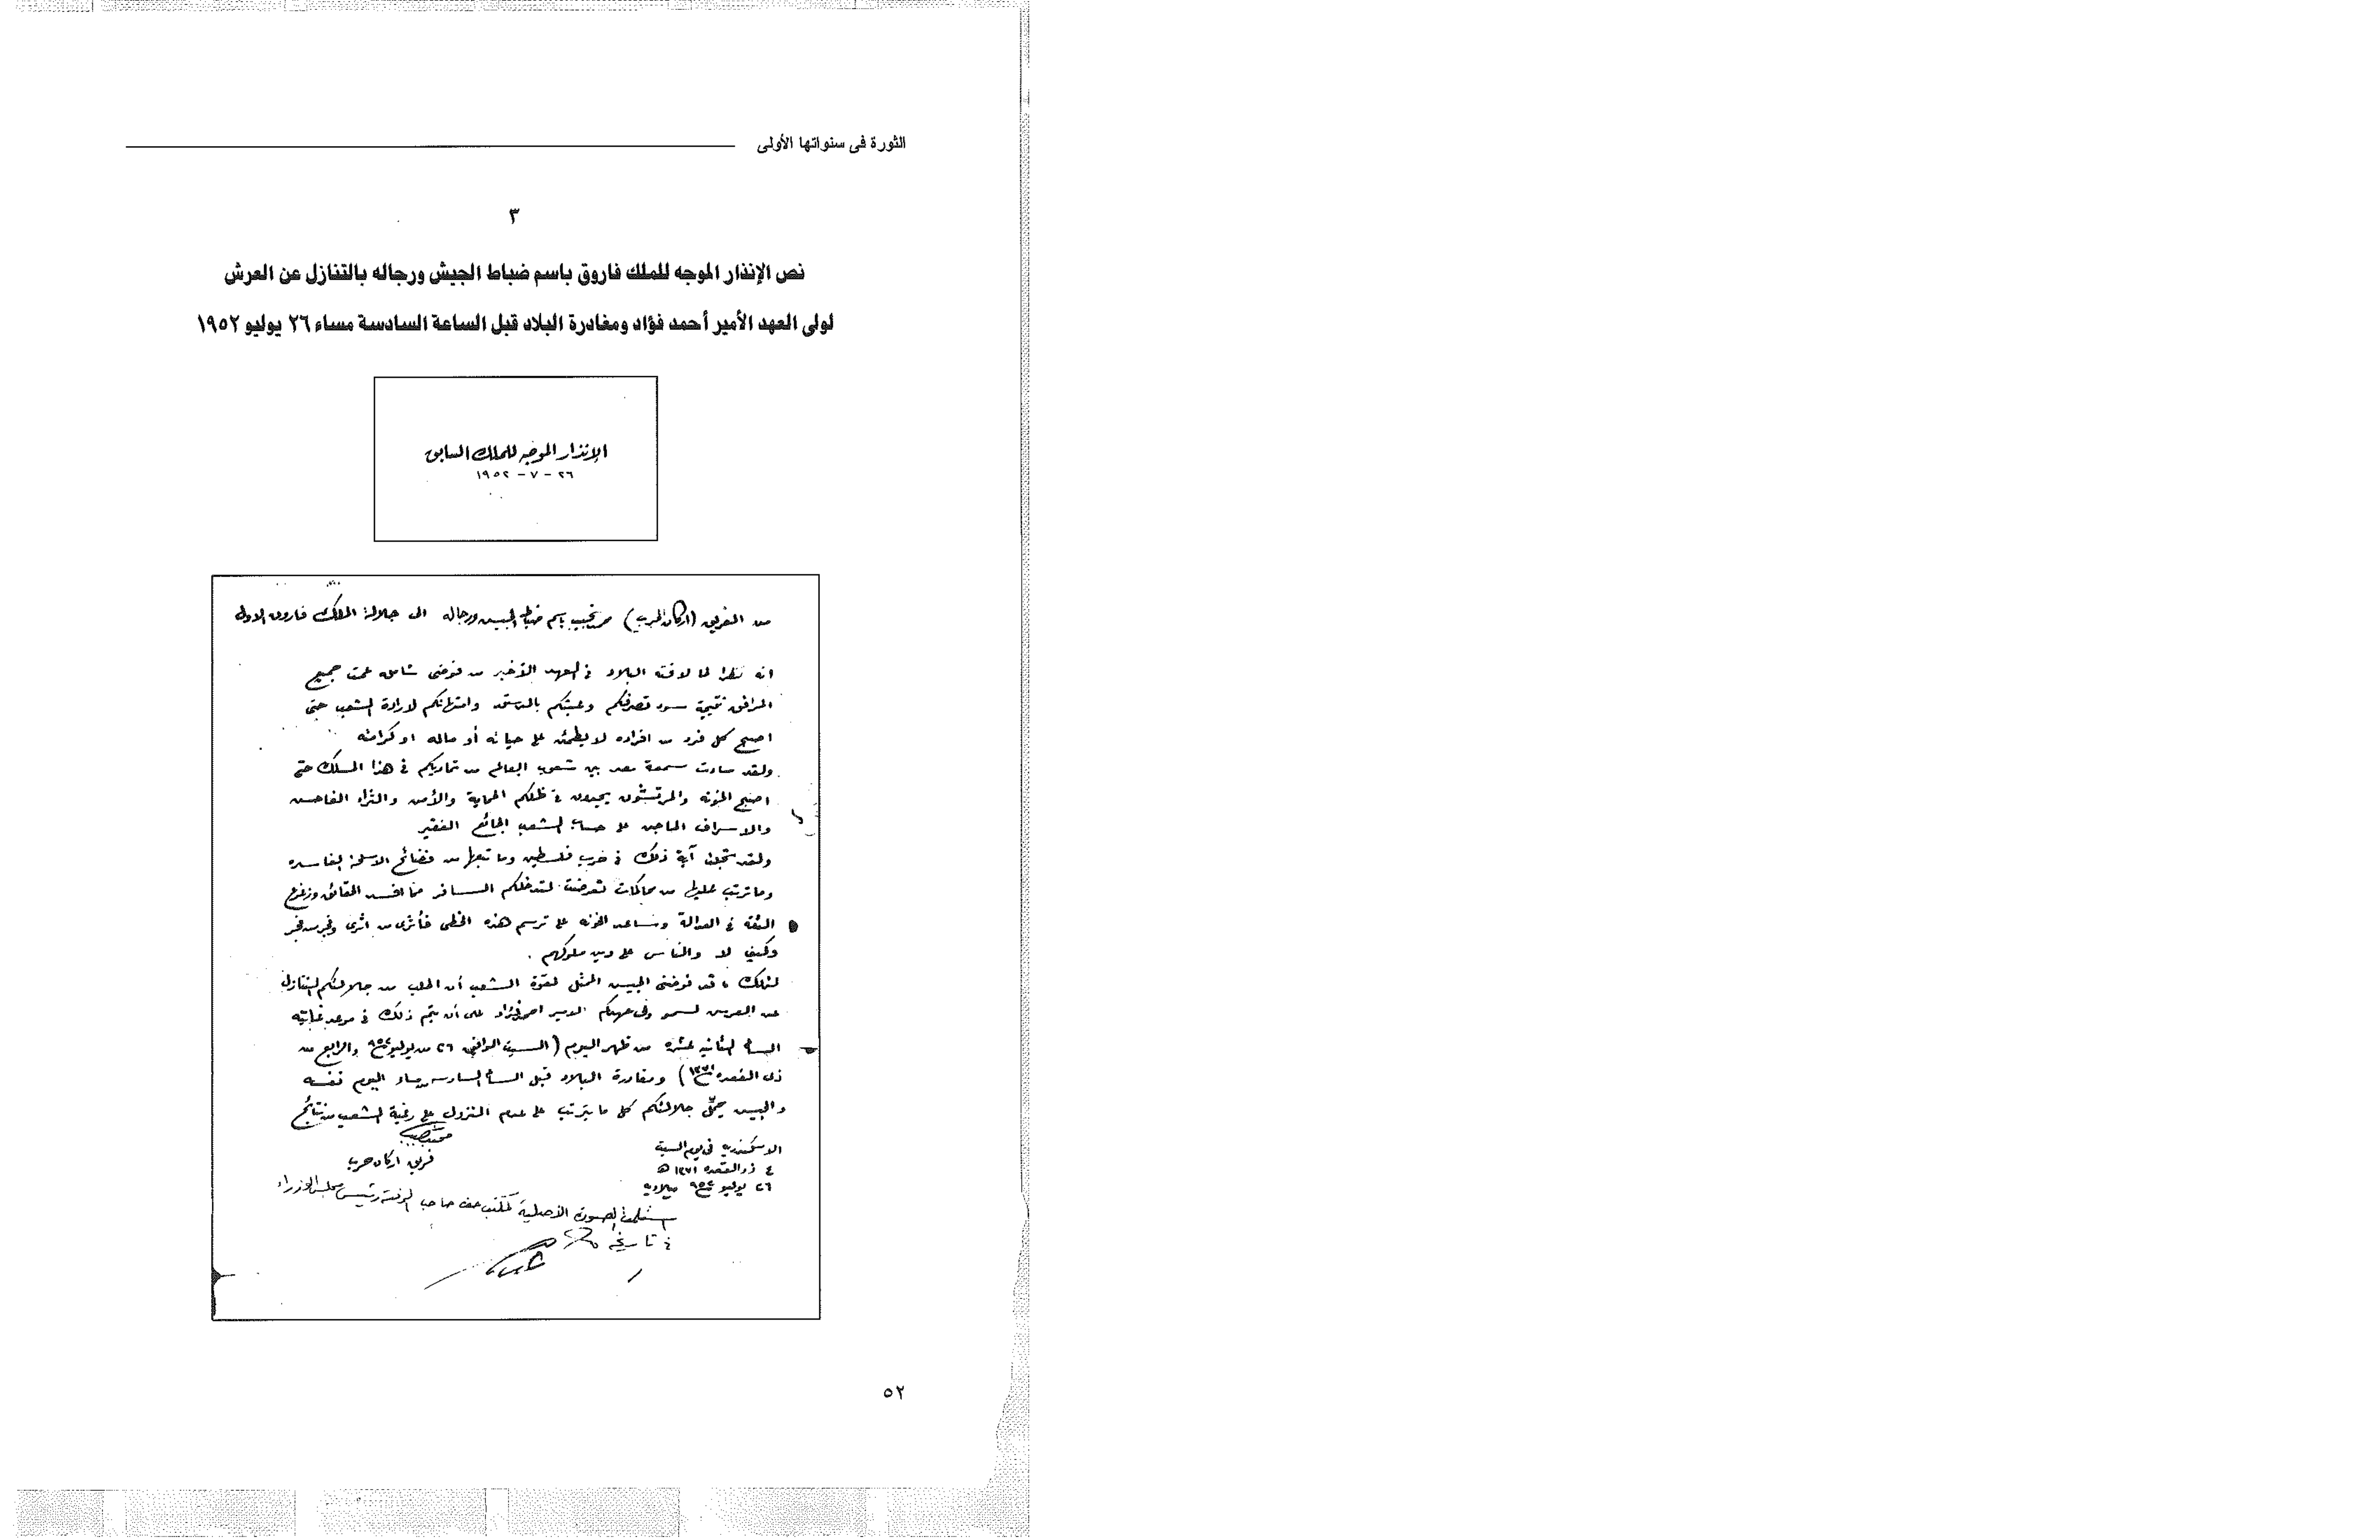 الثورة فى سنواتها الأولى
٣
نص الإنذار الموجه للملك فاروق باسم ضباط الجيش ورجاله بالتنازل عن العرش
لولى العهد الأمير أحمد فؤاد ومغادرة البلاد قبل الساعة السادسة مساء ٢٦ يوليو ١٩٥٢
الإنذار الموجه للملك السابق
٢٦ - ٧ - ١٩٥٢
من الفريق (اركان الحرب) محمد نجيب باسم ضباط الجيش ورجاله الى جلالة الملك فاروق الاول
انه نظرا لما لاقته البلاد فى العهد الأخير من فوضى شاملة عمت جميع
المرافق نتيجة سوء تصرفكم وعبثكم بالدستور وامتهانكم لارادة الشعب حتى
اصبح كل فرد من افراده لا يطمئن على حياته أو ماله او كرامته
ولقد ساءت سمعة مصر بين شعوب العالم من تماديكم فى هذا المسلك حتى
اصبح الخونة والمرتشون يجدون فى ظلكم الحماية والأمن والثراء الفاحش
والاسراف الماجن على حساب الشعب الجائع الفقير
ولقد تجلت آية ذلك فى حرب فلسطين وما تبعها من فضائح الاسلحة الفاسدة
وما ترتب عليها من محاكمات تعرضت لتدخلكم السافر مما افسد الحقائق وزعزع
الثقة فى العدالة وساعد الخونة على ترسم هذه الخطى فأثرى من اثرى وفجر من فجر
وكيف لا والناس على دين ملوكهم .
لذلك قد فوضنى الجيش الممثل لقوة الشعب أن اطلب من جلالتكم التنازل
عن العرش لسمو ولى عهدكم الامير احمد فؤاد على أن يتم ذلك فى موعد غايته
الساعة الثانية عشرة من ظهر اليوم (السبت الموافق ٢٦ من يوليو ١٩٥٢ والرابع من
ذى القعدة ١٣٧١) ومغادرة البلاد قبل الساعة السادسة من مساء اليوم نفسه
والجيش يحمل جلالتكم كل ما يترتب على عدم النزول على رغبة الشعب من نتائج
محمد نجيب
فريق اركان حرب
الاسكندرية فى يوم السبت
٤ ذو القعدة ١٣٧١ هـ
٢٦ يوليو ١٩٥٢ ميلادية
استلمت الصورة الأصلية صاحب الرفعة رئيس مجلس الوزراء
فى تاريخه
٥٢